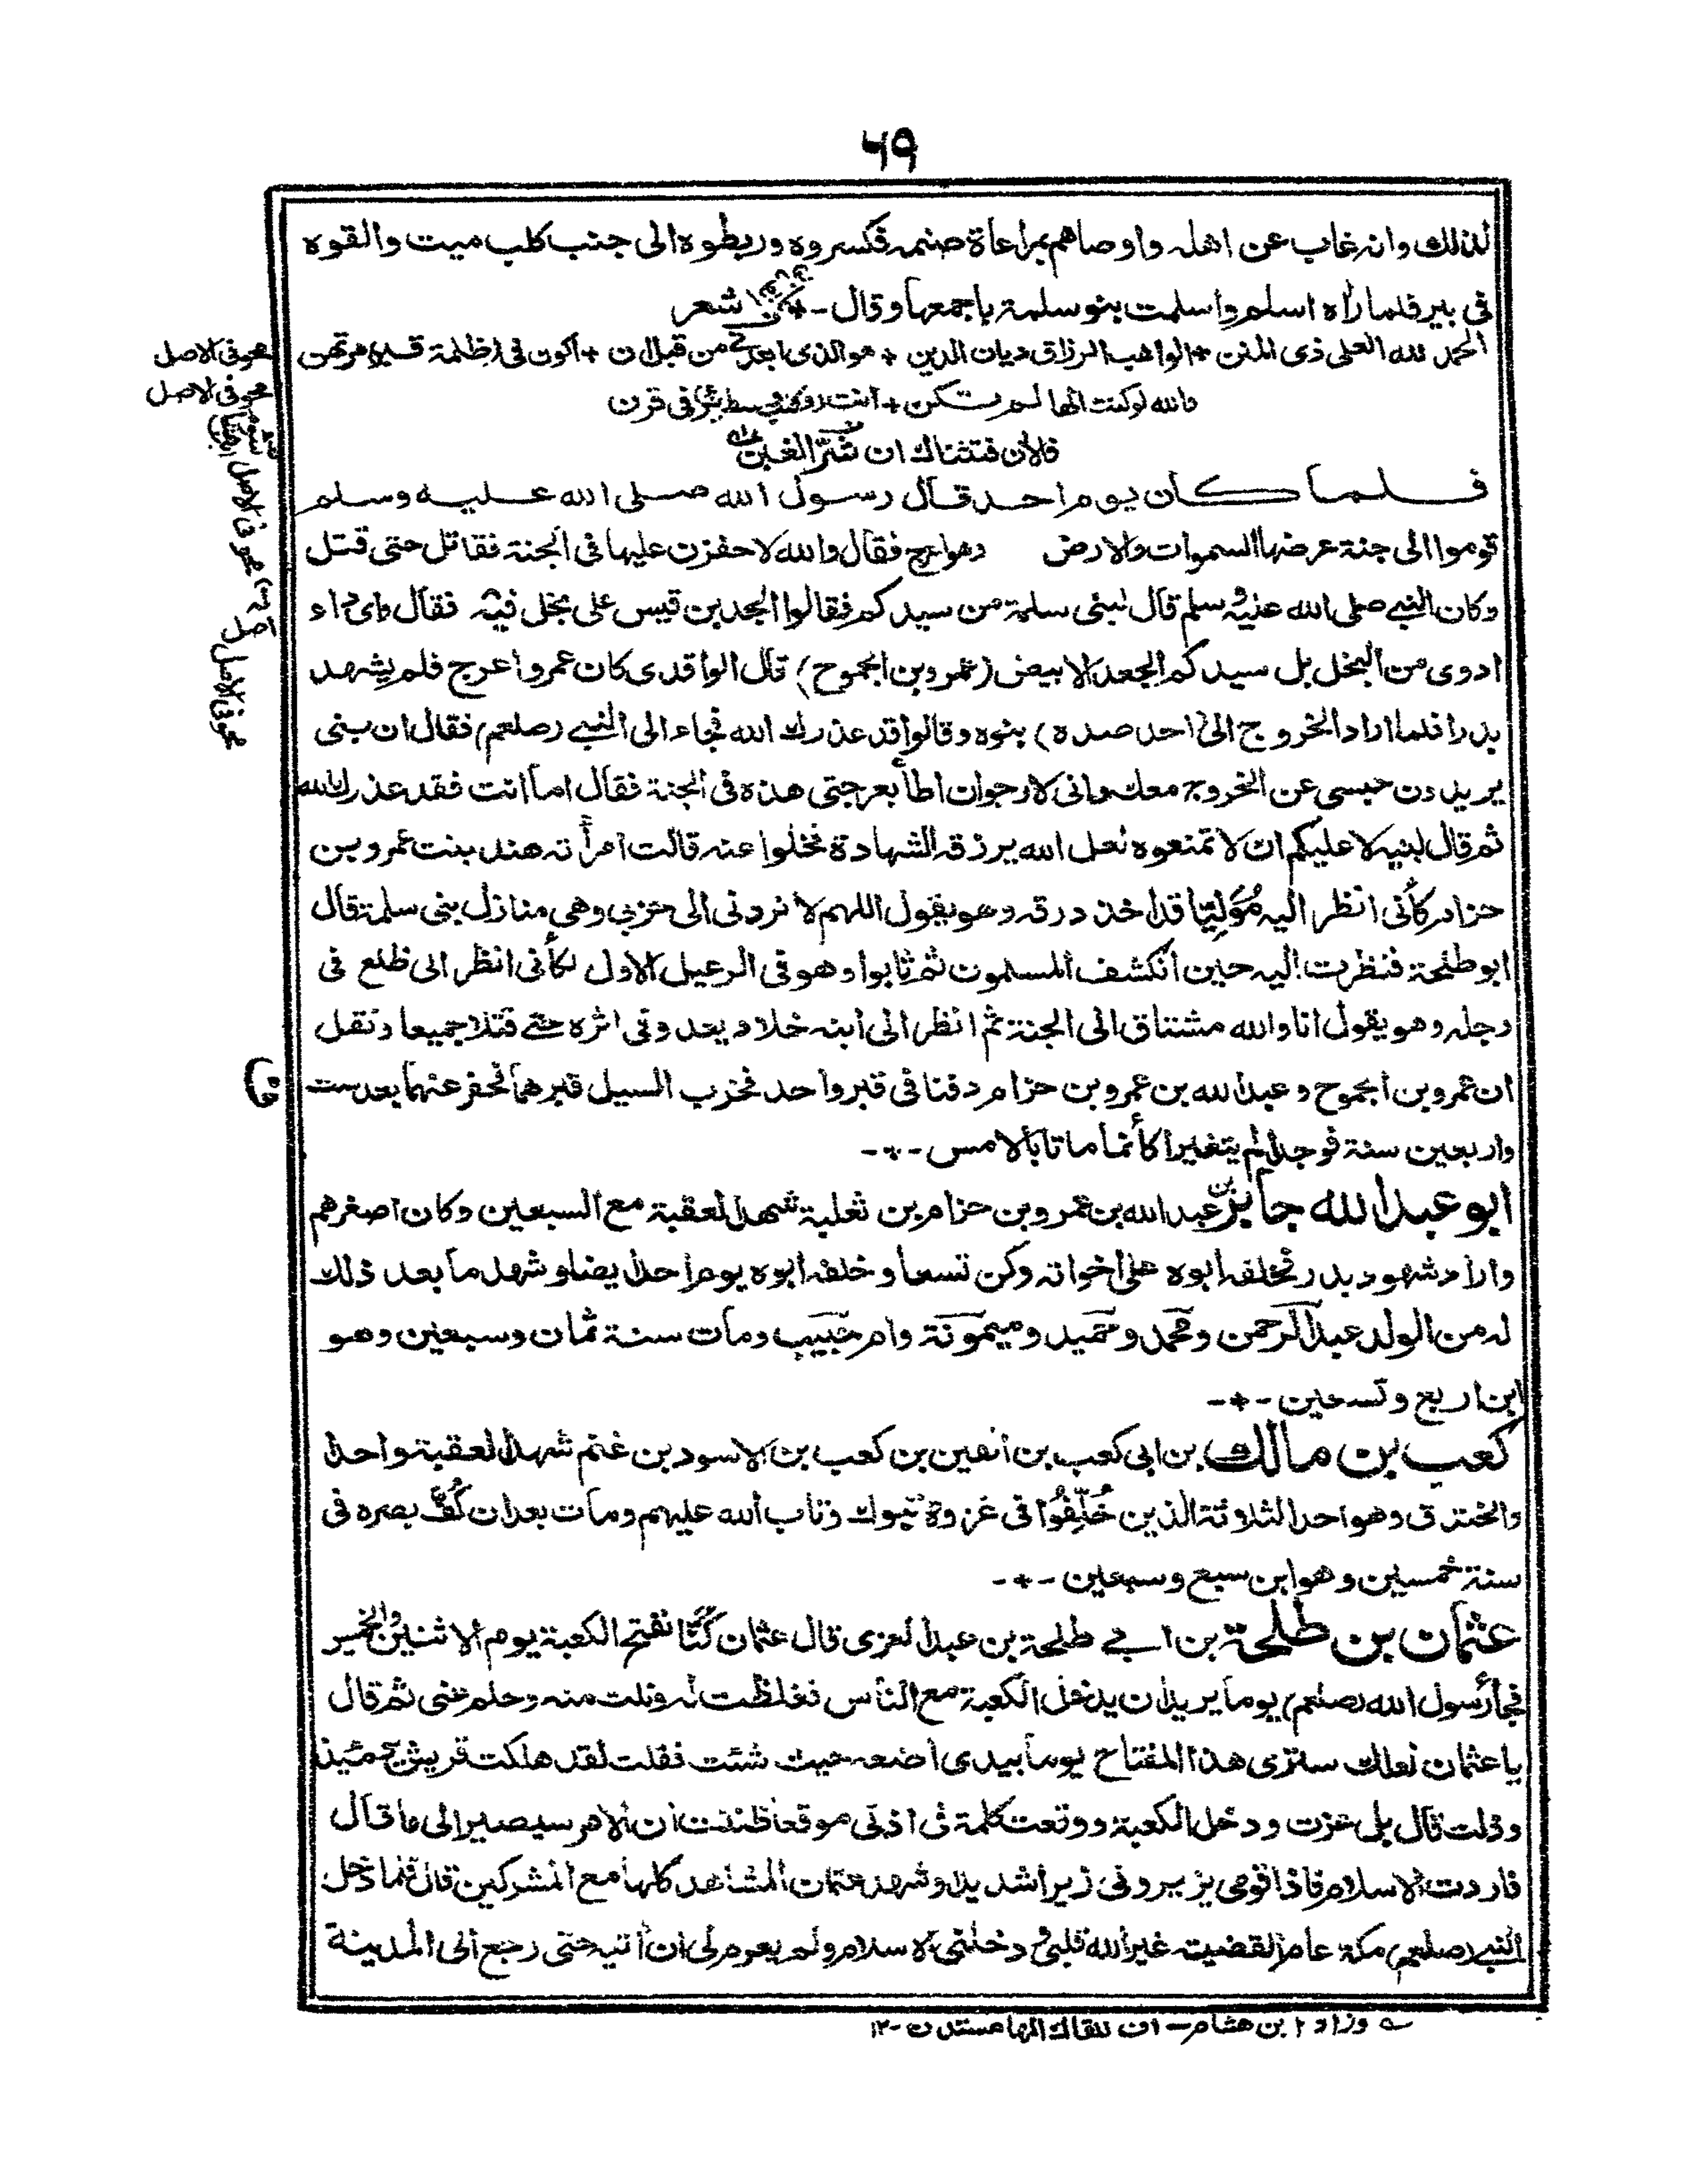 ٦٩
لذلك وانه غاب عن اهله واوصاهم بمراعاة صنمه فكسروه وربطوه الى جنب كلب ميت والقوه
فى بير فلما رأه اسلم وأسلمت بنو سلمة بأجمعها وقال -+ شعر
الحمد لله العلى ذى المنن + الواهب الرزاق ديان الدين + هو الذى انقذنى من قبل ان + اكون فى ظلمة قبر مرتهن
والله لو كنت الها لم تكن + انت وكلب وسط بئر فى قرن
فالان فتشناك ان شر الغبن
فلما كان يوم احد قال رسول الله صلى الله عليه وسلم
قوموا الى جنة عرضها السموات والارض وهو اعرج فقال والله لاحفزن عليها فى الجنة فقاتل حتى قتل
وكان النبى صلى الله عليه وسلم قال لبنى سلمة من سيدكم فقالوا الجد بن قيس على بخل فيه فقال واى داء
ادوى من البخل بل سيدكم الجعد الابيض (عمرو بن الجموح) قال الواقدى كان عمرو اعرج فلم يشهد
بدرا فلما اراد الخروج الى احد صده) بنوه وقالوا قد عذرك الله فجاء الى النبى (صلعم) فقال ان بنى
يريدون حبسى عن الخروج معك وانى لارجو ان اطأ بعرجتى هذه فى الجنة فقال اما انت فقد عذرك الله
ثم قال لبنيه لا عليكم ان لا تمنعوه لعل الله يرزقه الشهادة فخلوا عنه قالت امرأته هند بنت عمرو بن
حزام كأنى انظر اليه مُوَلِّيًا قد اخذ درقه وهو يقول اللهم لا تردنى الى خزبى وهى منازل بنى سلمة قال
ابو طلحة فنظرت اليه حين انكشف المسلمون ثم ثابوا وهو فى الرعيل الاول لكأنى انظر الى ظلع فى
رجله وهو يقول انا والله مشتاق الى الجنة ثم انظر الى ابنه خلاد يعد وفى اثره حتى قتلا جميعا ونقل
ان عمرو بن الجموح وعبد الله بن عمرو بن حزام دفنا فى قبر واحد فخرب السيل قبرهما فحفر عنهما بعد ست
واربعين سنة فوجدا لم يتغيرا كأنما ماتا بالامس -+-
ابو عبد الله جابر بن عبد الله بن عمرو بن حزام بن ثعلبة شهد العقبة مع السبعين وكان اصغرهم
واراد شهود بدر فخلفه ابوه على اخواته وكن تسعا وخلفه ابوه يوم احد ايضا وشهد ما بعد ذلك
له من الولد عبد الرحمن ومحمد وحميد وميمونة وام حبيب ومات سنة ثمان وسبعين وهو
ابن اربع وتسعين -+-
كعب بن مالك بن ابى كعب بن القين بن كعب بن الاسود بن غنم شهد العقبة واحدا
والخندق وهو احد الثلاثة الذين خُلِّفُوا فى غزوة تبوك وتاب الله عليهم ومات بعد ان كُفَّ بصره فى
سنة خمسين وهو ابن سبع وسبعين -+-
عثمان بن طلحة بن ابى طلحة بن عبد العزى قال عثمان كُنَّا نفتح الكعبة يوم الاثنين والخميس
فجاء رسول الله (صلعم) يوما يريد ان يدخل الكعبة مع الناس فغلظت له ونلت منه وحلم عنى ثم قال
يا عثمان لعلك سترى هذا المفتاح يوما بيدى اضعه حيث شئت فقلت لقد هلكت قريش يومئيذ
وذلت قال بلى عزت ودخل الكعبة ووقعت كلمة فى اذنى موقعا ظننت ان الامر سيصير الى ما قال
فاردت الاسلام فاذا قومى يزبرونى زبرا شديدا وشهد عثمان المشاهد كلها مع المشركين قال فلما دخل
النبى (صلعم) مكة عام القضية غير الله قلبى ودخلنى الاسلام ولم يعزم لى ان آتيه حتى رجع الى المدينة
محو فى الاصل
محو فى الاصل
محو فى الاصل
اصل
محو فى الاصل
ف
وزاد ابن هشام - اف لملقاك الها مستدن -١٢